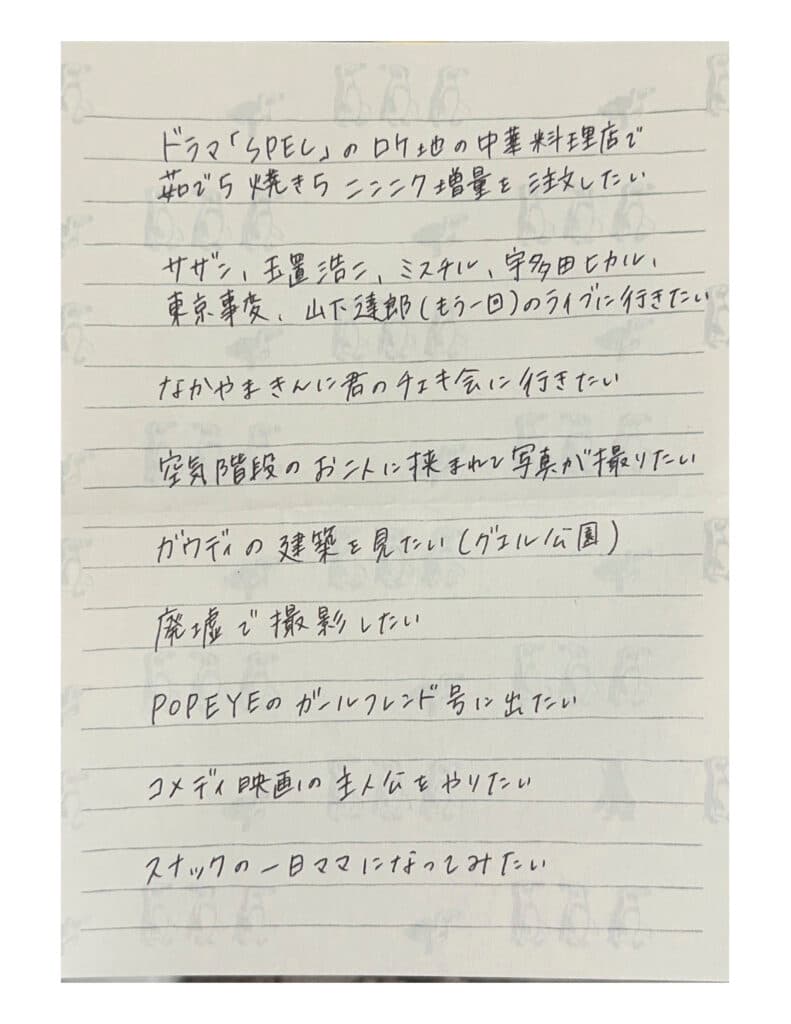 ドラマ「SPEC」のロケ地の中華料理店で
茹でら焼きらニンニク増量を注文したい
サザン、玉置浩二、ミスチル、宇多田ヒカル、
東京事変、山下達郎(もう一回)のライブに行きたい
なかやまきんに君のチェキ会に行きたい
空気階段のお二人に挟まれて写真が撮りたい
ガウディの建築を見たい(グエル公園)
廃墟で撮影したい
POPEYEのガールフレンド号に出たい
コメディ映画の主人公をやりたい
スナックの一日ママになってみたい